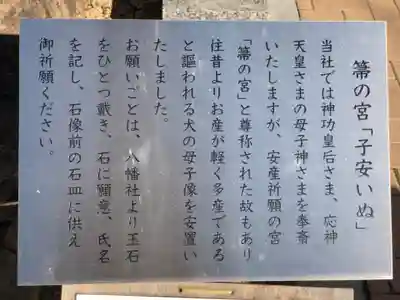 箒の宮「子安いぬ」
当社では神功皇后さま、応神
天皇さまの母子神さまを奉斎
いたしますが、安産祈願の宮
「箒の宮」と尊称された故もあり
往昔よりお産が軽く多産である
と謳われる犬の母子像を安置い
たしました。
お願いごとは、八幡社より玉石
をひとつ戴き、石に願意、氏名
を記し、石像前の石皿に供え
御祈願ください。